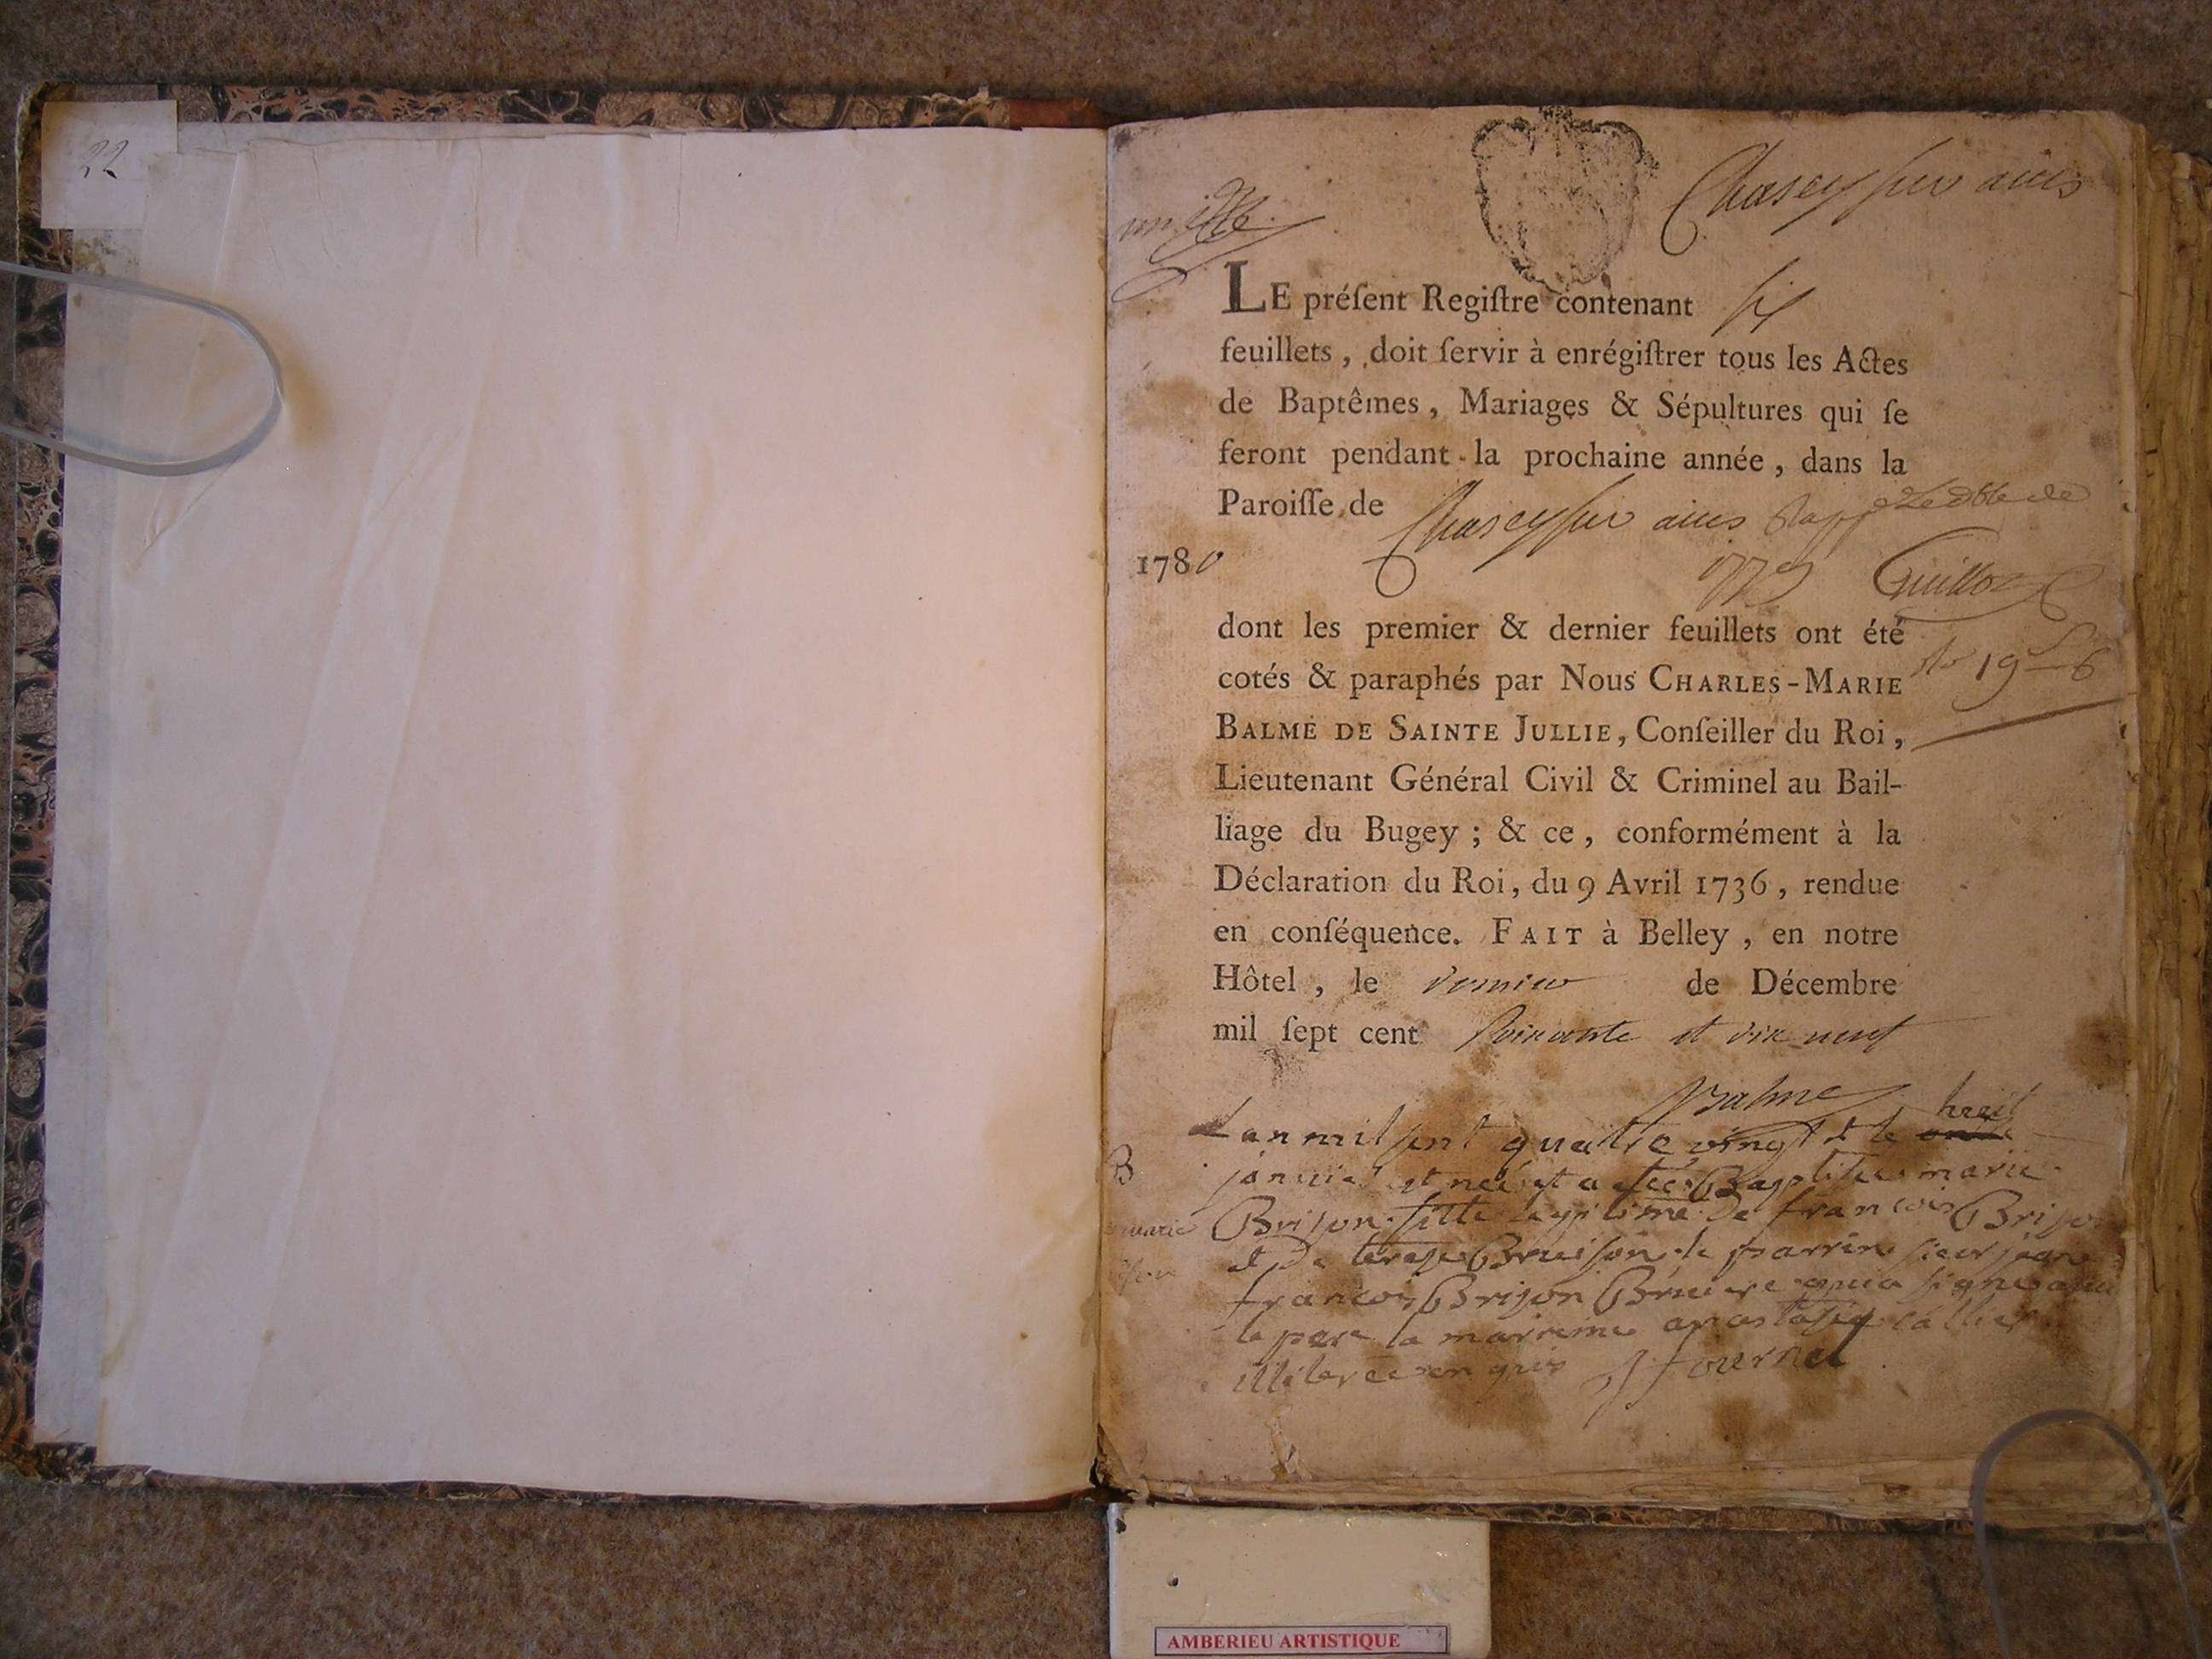 22
Chasey sur ains
LE préſent Regiſtre contenant six
feuillets, doit ſervir à enrégiſtrer tous les Actes
de Baptêmes, Mariages & Sépultures qui ſe
feront pendant la prochaine année, dans la
Paroiſſe de Chasey sur ains
1780
1779 Guilloz
dont les premier & dernier feuillets ont été
cotés & paraphés par Nous CHARLES-MARIE
19 6
BALME DE SAINTE JULLIE, Conſeiller du Roi,
Lieutenant Général Civil & Criminel au Bail-
liage du Bugey ; & ce, conformément à la
Déclaration du Roi, du 9 Avril 1736, rendue
en conſéquence. FAIT à Belley, en notre
Hôtel, le dernier de Décembre
mil ſept cent soixante et dix neuf
Balme
Lan mil sept quatre vingt et le huit
B
janvier est neé et a eteé Baptisee marie
marie
Brison fille legitime de francois Brison
et De terese Bruison le parrin sieur jean
francois Brison Bruiere qui a signe avec
le pere la marreine anastasie callier
illiteree en quis Journet
AMBERIEU ARTISTIQUE